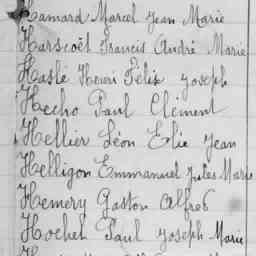 Hamard Marcel Jean Marie
Harscoët Francis André Marie
Haslé Henri Félix Joseph
Hecho Paul Clément
Hellier Léon Elie Jean
Helligon Emmanuel Jules Marie
Hemery Gaston Alfred
Hochet Paul Joseph Marie